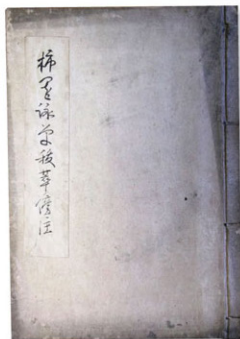 柿園詠草拔萃傍注